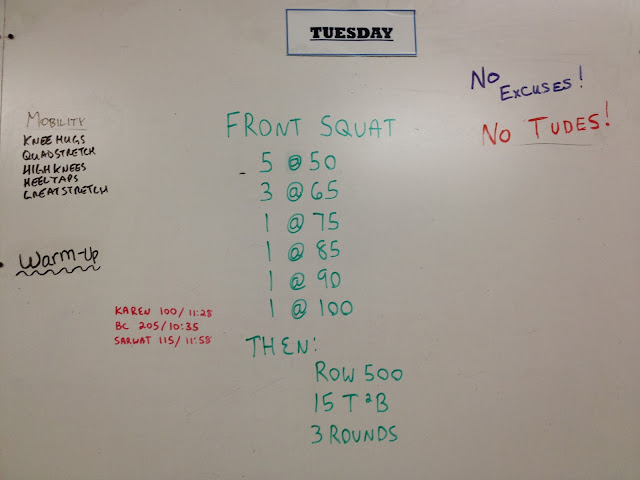 TUESDAY
No
Excuses!
No Tudes!
Mobility
Knee Hugs
Quad Stretch
High Knees
Heel Taps
Great Stretch
Warm-Up
Front Squat
5 @ 50
3 @ 65
1 @ 75
1 @ 85
1 @ 90
1 @ 100
Karen 100/11:28
BC 205/10:35
Sarwat 115/11:58
Then:
Row 500
15 T2B
3 Rounds